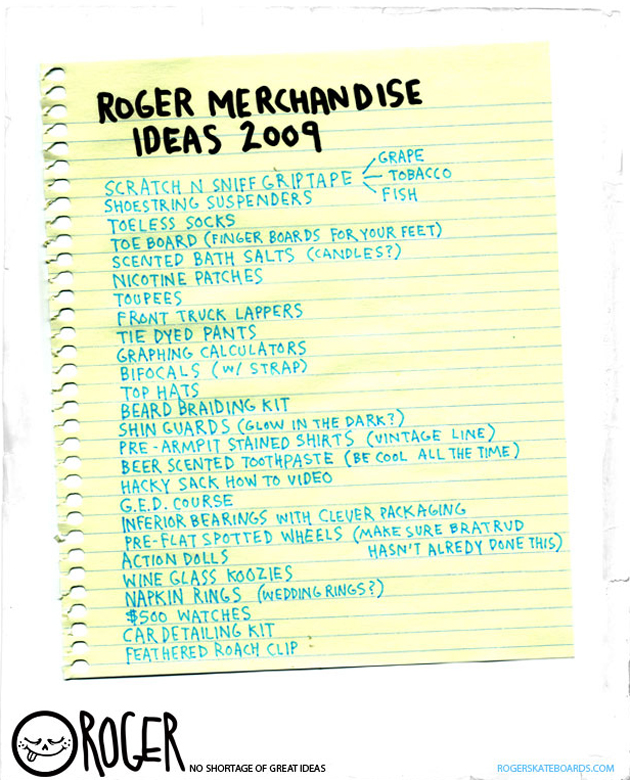 ROGER MERCHANDISE
IDEAS 2009
SCRATCH N SNIFF GRIPTAPE
GRAPE
TOBACCO
FISH
SHOESTRING SUSPENDERS
TOELESS SOCKS
TOE BOARD (FINGER BOARDS FOR YOUR FEET)
SCENTED BATH SALTS (CANDLES?)
NICOTINE PATCHES
TOUPEES
FRONT TRUCK LAPPERS
TIE DYED PANTS
GRAPHING CALCULATORS
BIFOCALS (W/ STRAP)
TOP HATS
BEARD BRAIDING KIT
SHIN GUARDS (GLOW IN THE DARK?)
PRE-ARMPIT STAINED SHIRTS (VINTAGE LINE)
BEER SCENTED TOOTHPASTE (BE COOL ALL THE TIME)
HACKY SACK HOW TO VIDEO
G.E.D. COURSE
INFERIOR BEARINGS WITH CLEVER PACKAGING
PRE-FLAT SPOTTED WHEELS (MAKE SURE BRATRUD
HASN'T ALREDY DONE THIS)
ACTION DOLLS
WINE GLASS KOOZIES
NAPKIN RINGS (WEDDING RINGS?)
$500 WATCHES
CAR DETAILING KIT
FEATHERED ROACH CLIP
ROGER
NO SHORTAGE OF GREAT IDEAS
ROGERSKATEBOARDS.COM